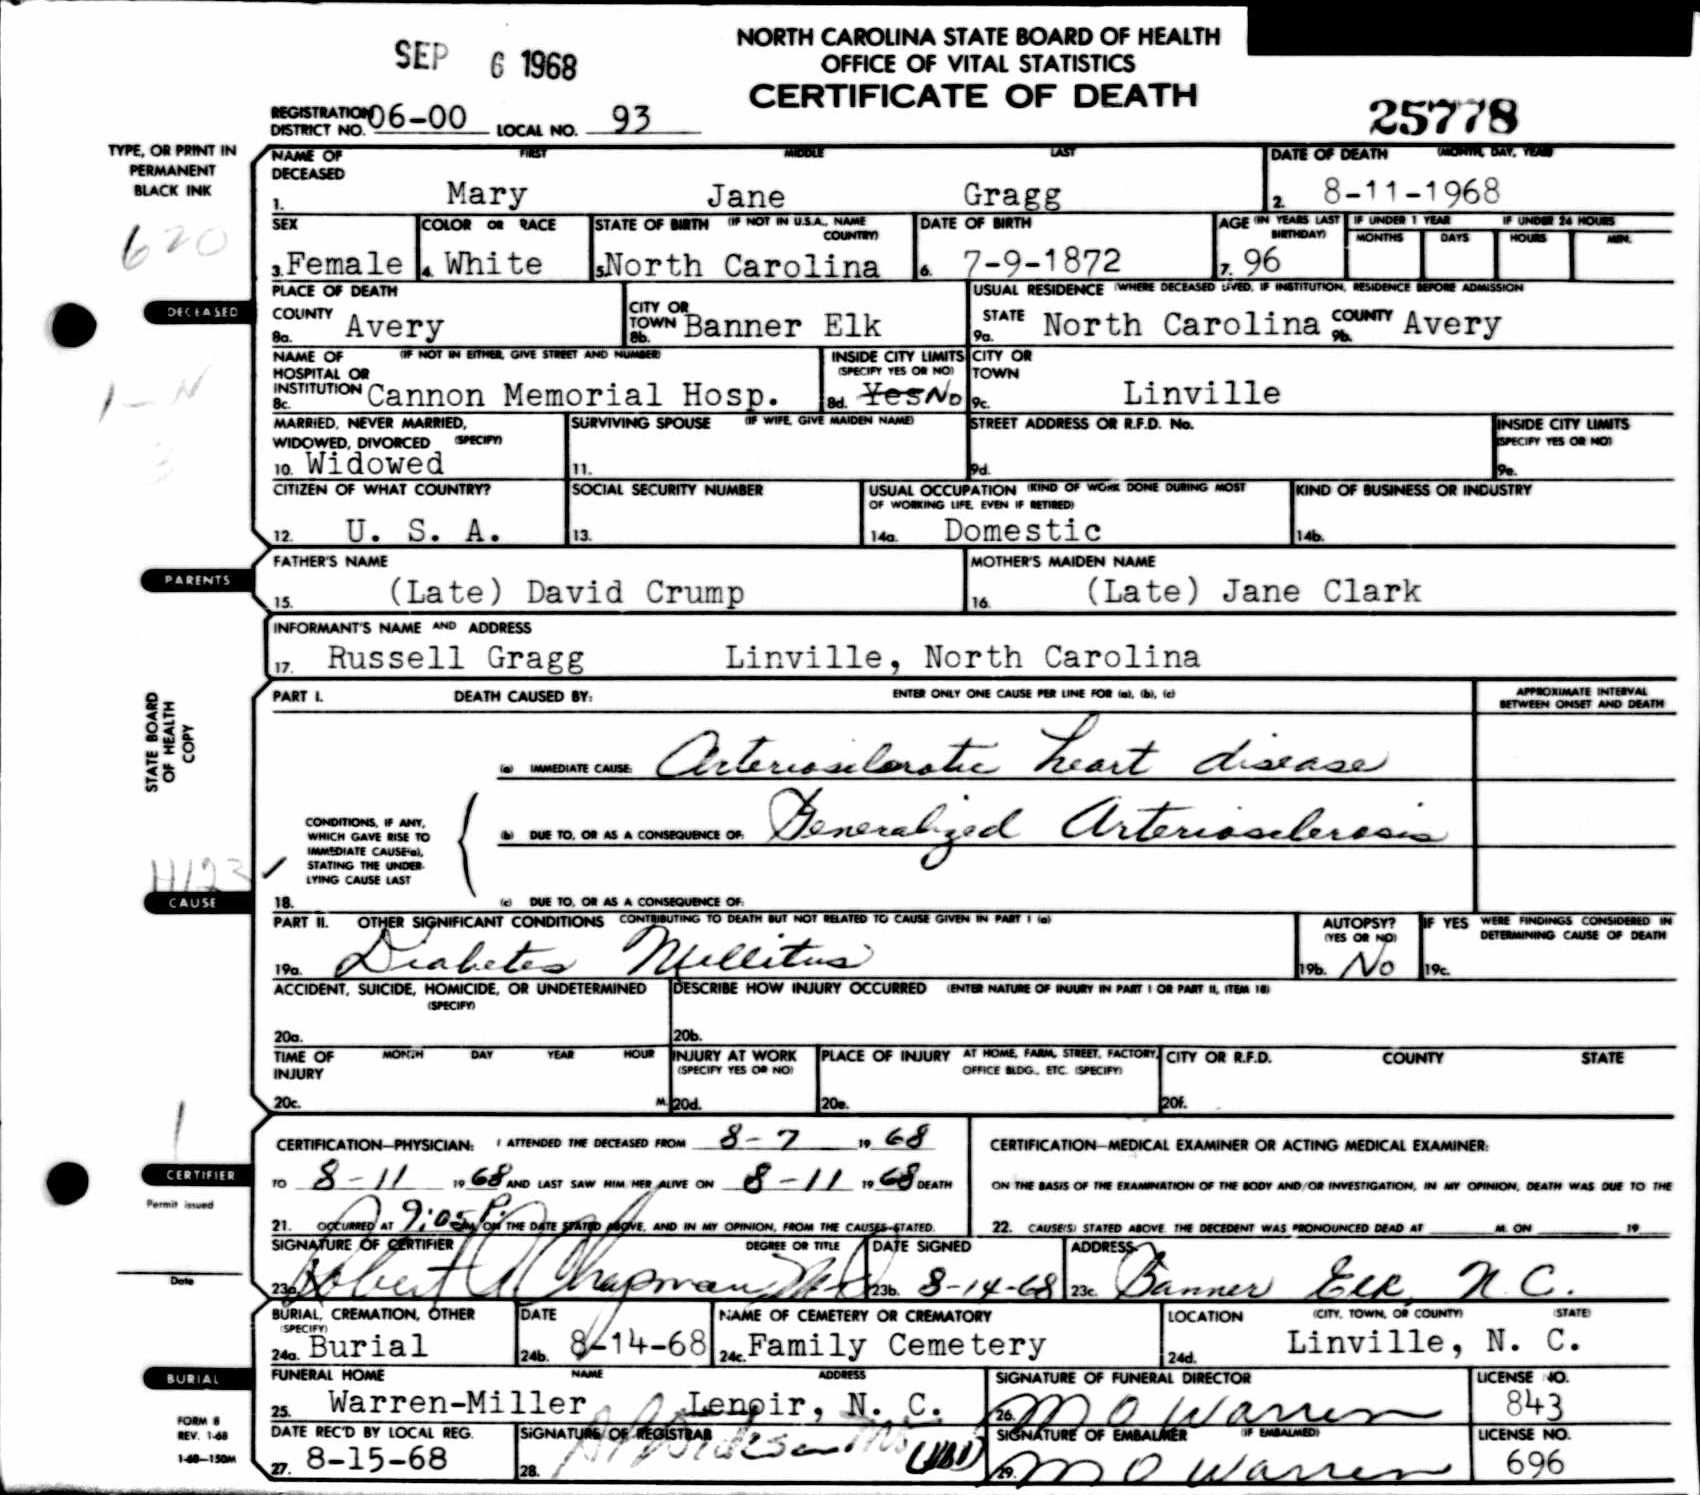 SEP 6 1968
NORTH CAROLINA STATE BOARD OF HEALTH
OFFICE OF VITAL STATISTICS
CERTIFICATE OF DEATH
REGISTRATION DISTRICT NO. 06-00 LOCAL NO. 93
25778
TYPE, OR PRINT IN
PERMANENT
BLACK INK
620
NAME OF DECEASED FIRST MIDDLE LAST
1. Mary Jane Gragg
DATE OF DEATH (MONTH, DAY, YEAR)
2. 8-11-1968
SEX
3. Female
COLOR OR RACE
4. White
STATE OF BIRTH (IF NOT IN U.S.A., NAME COUNTRY)
5. North Carolina
DATE OF BIRTH
6. 7-9-1872
AGE (IN YEARS LAST BIRTHDAY)
7. 96
IF UNDER 1 YEAR
MONTHS DAYS
IF UNDER 24 HOURS
HOURS MIN.
DECEASED
PLACE OF DEATH
COUNTY
8a. Avery
CITY OR TOWN
8b. Banner Elk
USUAL RESIDENCE (WHERE DECEASED LIVED, IF INSTITUTION, RESIDENCE BEFORE ADMISSION
STATE
9a. North Carolina
COUNTY
9b. Avery
NAME OF HOSPITAL OR INSTITUTION (IF NOT IN EITHER, GIVE STREET AND NUMBER)
8c. Cannon Memorial Hosp.
INSIDE CITY LIMITS (SPECIFY YES OR NO)
8d. Yes No
CITY OR TOWN
9c. Linville
1-N
3
MARRIED, NEVER MARRIED, WIDOWED, DIVORCED (SPECIFY)
10. Widowed
SURVIVING SPOUSE (IF WIFE, GIVE MAIDEN NAME)
11.
STREET ADDRESS OR R.F.D. No.
9d.
INSIDE CITY LIMITS (SPECIFY YES OR NO)
9e.
CITIZEN OF WHAT COUNTRY?
12. U. S. A.
SOCIAL SECURITY NUMBER
13.
USUAL OCCUPATION (KIND OF WORK DONE DURING MOST OF WORKING LIFE, EVEN IF RETIRED)
14a. Domestic
KIND OF BUSINESS OR INDUSTRY
14b.
PARENTS
FATHER'S NAME
15. (Late) David Crump
MOTHER'S MAIDEN NAME
16. (Late) Jane Clark
INFORMANT'S NAME AND ADDRESS
17. Russell Gragg Linville, North Carolina
STATE BOARD
OF HEALTH
COPY
PART I. DEATH CAUSED BY: ENTER ONLY ONE CAUSE PER LINE FOR (a), (b), (c)
APPROXIMATE INTERVAL BETWEEN ONSET AND DEATH
(a) IMMEDIATE CAUSE: Arteriosclerotic heart disease
CONDITIONS, IF ANY,
WHICH GAVE RISE TO
IMMEDIATE CAUSE(a),
STATING THE UNDER-
LYING CAUSE LAST
(b) DUE TO, OR AS A CONSEQUENCE OF: Generalized Arteriosclerosis
18. (c) DUE TO, OR AS A CONSEQUENCE OF:
CAUSE
PART II. OTHER SIGNIFICANT CONDITIONS CONTRIBUTING TO DEATH BUT NOT RELATED TO CAUSE GIVEN IN PART I (a)
19a. Diabetes Mellitus
AUTOPSY? (YES OR NO)
19b. No
IF YES WERE FINDINGS CONSIDERED IN DETERMINING CAUSE OF DEATH
19c.
ACCIDENT, SUICIDE, HOMICIDE, OR UNDETERMINED (SPECIFY)
20a.
DESCRIBE HOW INJURY OCCURRED (ENTER NATURE OF INJURY IN PART I OR PART II, ITEM 18)
20b.
TIME OF INJURY MONTH DAY YEAR HOUR
20c. M.
INJURY AT WORK (SPECIFY YES OR NO)
20d.
PLACE OF INJURY AT HOME, FARM, STREET, FACTORY, OFFICE BLDG., ETC. (SPECIFY)
20e.
CITY OR R.F.D. COUNTY STATE
20f.
1
CERTIFIER
Permit issued
Date
CERTIFICATION—PHYSICIAN: I ATTENDED THE DECEASED FROM 8-7 19 68
TO 8-11 19 68 AND LAST SAW HIM HER ALIVE ON 8-11 19 68 DEATH
21. OCCURRED AT 9:05 P. M. ON THE DATE STATED ABOVE, AND IN MY OPINION, FROM THE CAUSES STATED.
CERTIFICATION—MEDICAL EXAMINER OR ACTING MEDICAL EXAMINER:
ON THE BASIS OF THE EXAMINATION OF THE BODY AND/OR INVESTIGATION, IN MY OPINION, DEATH WAS DUE TO THE
22. CAUSE(S) STATED ABOVE. THE DECEDENT WAS PRONOUNCED DEAD AT M. ON 19
SIGNATURE OF CERTIFIER DEGREE OR TITLE
23a. Robert A Chapman MD
DATE SIGNED
23b. 8-14-68
ADDRESS
23c. Banner Elk, N. C.
BURIAL, CREMATION, OTHER (SPECIFY)
24a. Burial
DATE
24b. 8-14-68
NAME OF CEMETERY OR CREMATORY
24c. Family Cemetery
LOCATION (CITY, TOWN, OR COUNTY) (STATE)
24d. Linville, N. C.
BURIAL
FUNERAL HOME NAME ADDRESS
25. Warren-Miller Lenoir, N. C.
SIGNATURE OF FUNERAL DIRECTOR
26. M O Warren
LICENSE NO.
843
FORM 8
REV. 1-68
1-68—150M
DATE REC'D BY LOCAL REG.
27. 8-15-68
SIGNATURE OF REGISTRAR
28.
SIGNATURE OF EMBALMER (IF EMBALMED)
29. M O Warren
LICENSE NO.
696